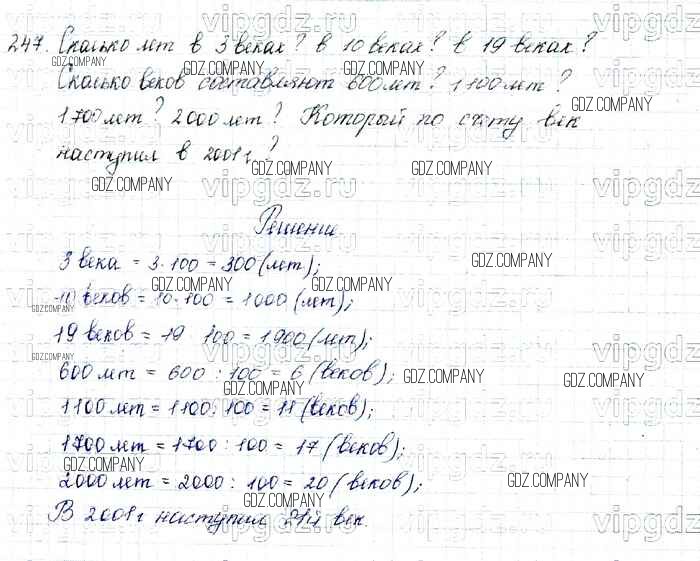 247. Сколько лет в 3 веках? в 10 веках? в 19 веках?
Сколько веков составляют 600 лет? 1100 лет?
1700 лет? 2000 лет? Который по счёту век
наступил в 2001 г?
Решение
3 века = 3·100 = 300 (лет);
10 веков = 10·100 = 1000 (лет);
19 веков = 19·100 = 1900 (лет);
600 лет = 600 : 100 = 6 (веков);
1100 лет = 1100 : 100 = 11 (веков);
1700 лет = 1700 : 100 = 17 (веков);
2000 лет = 2000 : 100 = 20 (веков);
В 2001 г наступил 21й век.
vipgdz.ru
GDZ.COMPANY